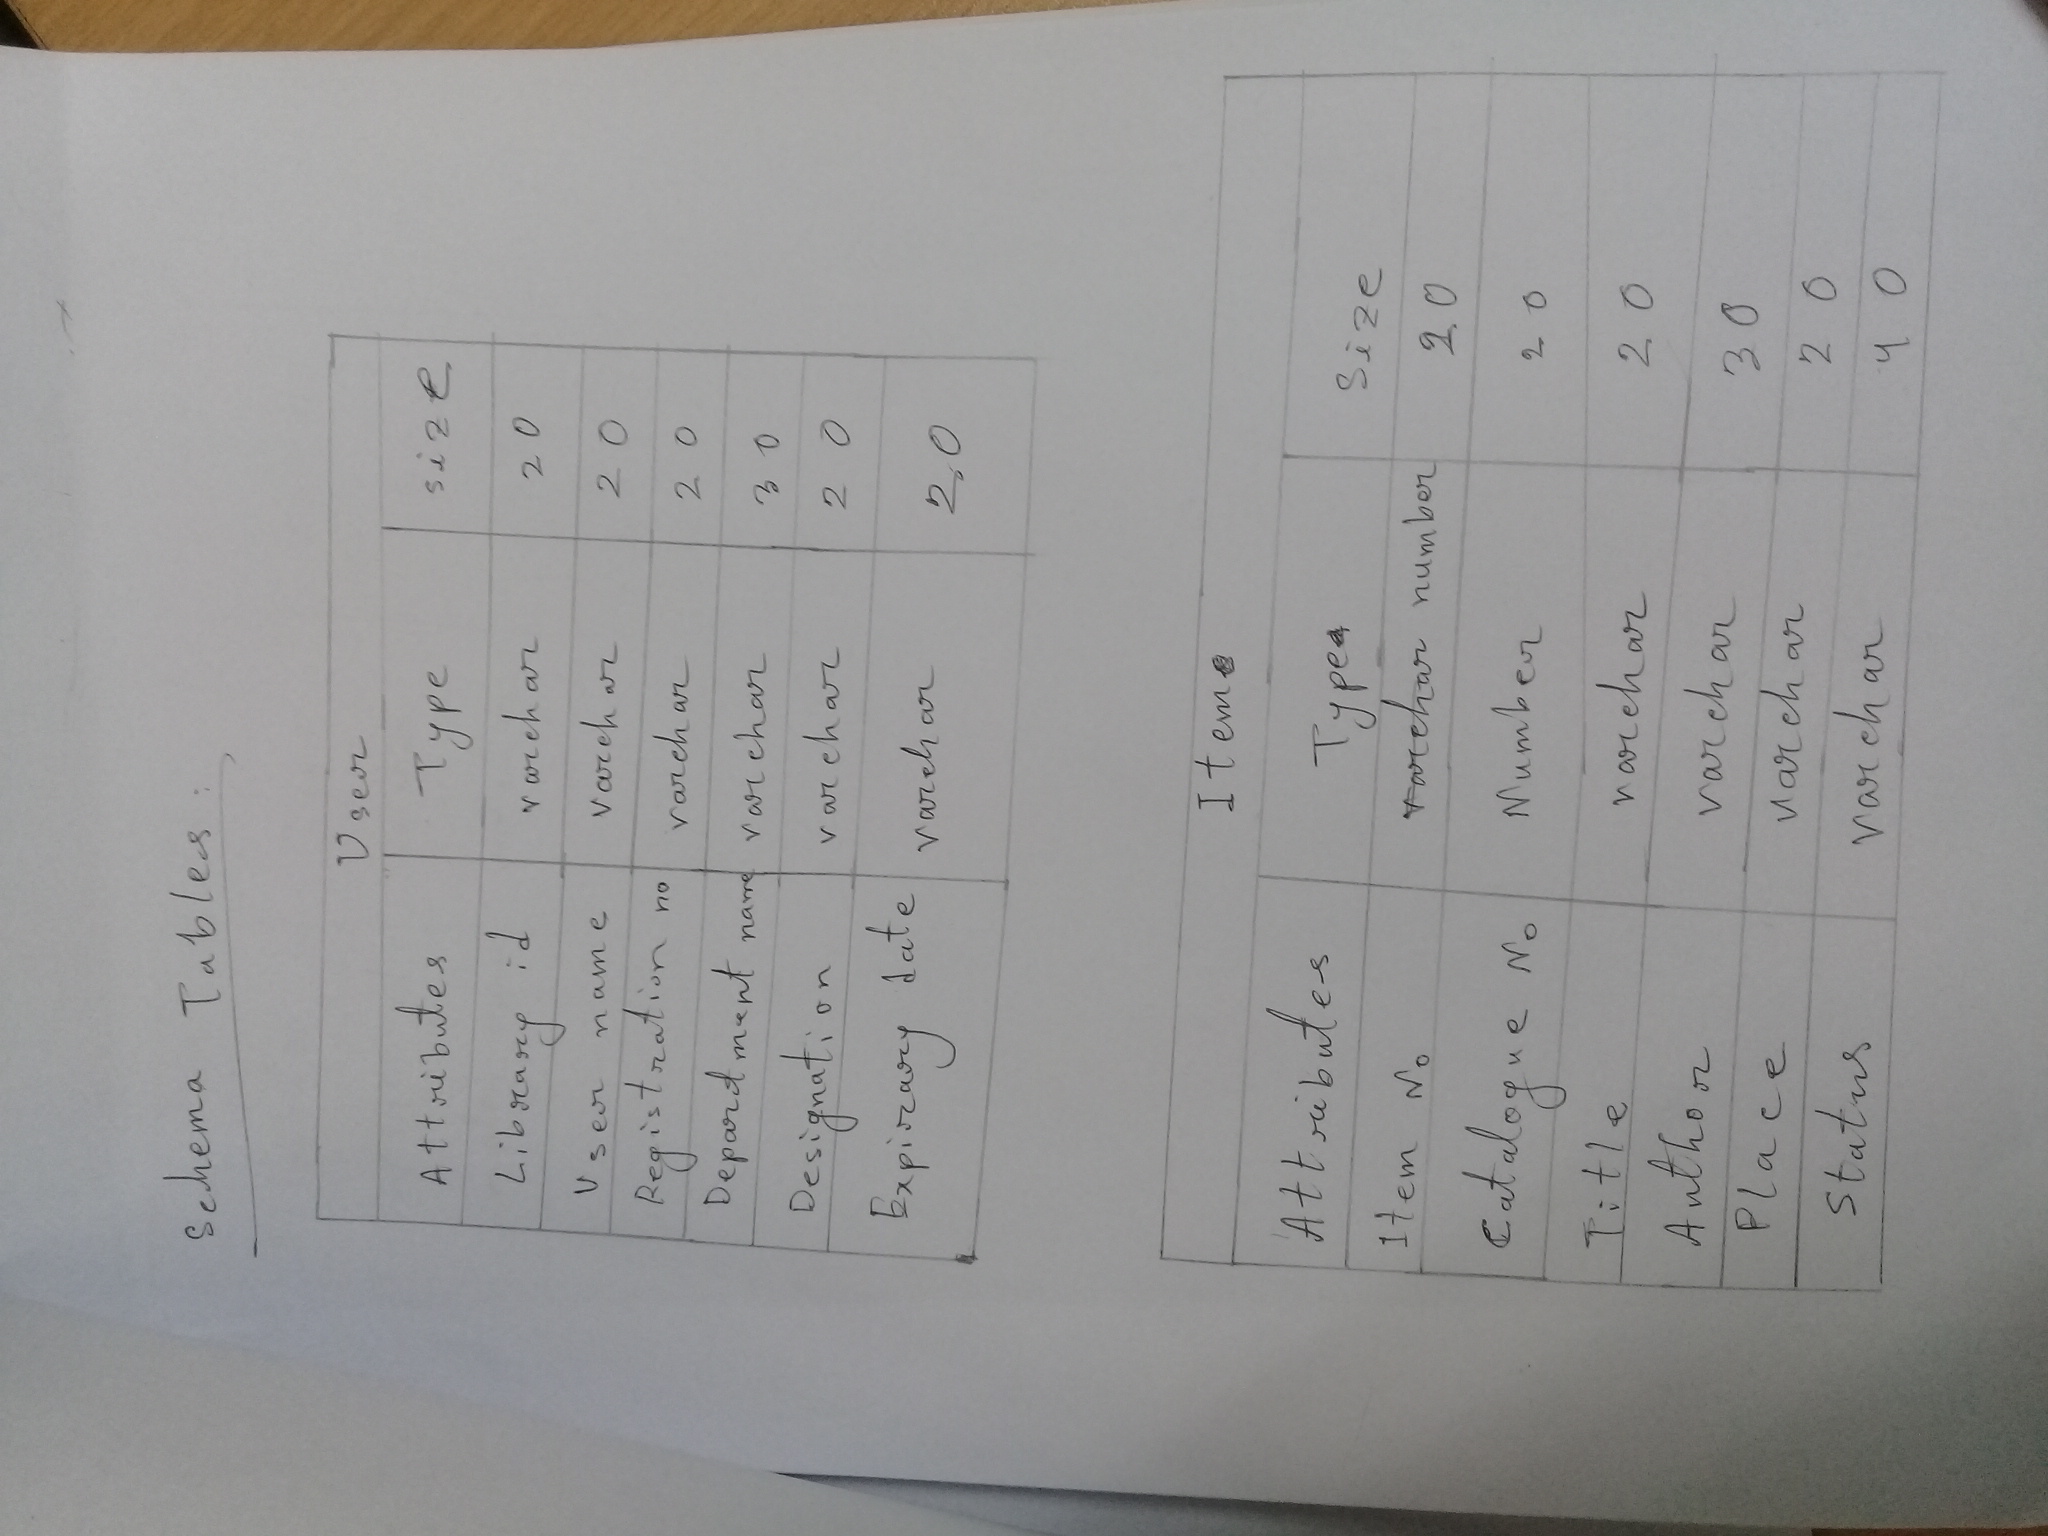 Schema Tables:
User
Attributes Type size
Library id varchar 20
User name varchar 20
Registration no varchar 20
Department name varchar 30
Designation varchar 20
Expirary date varchar 20
Item
Attributes Type Size
Item No varchar number 20
Catalogue No Number 20
Title varchar 20
Author varchar 30
Place varchar 20
Status varchar 40